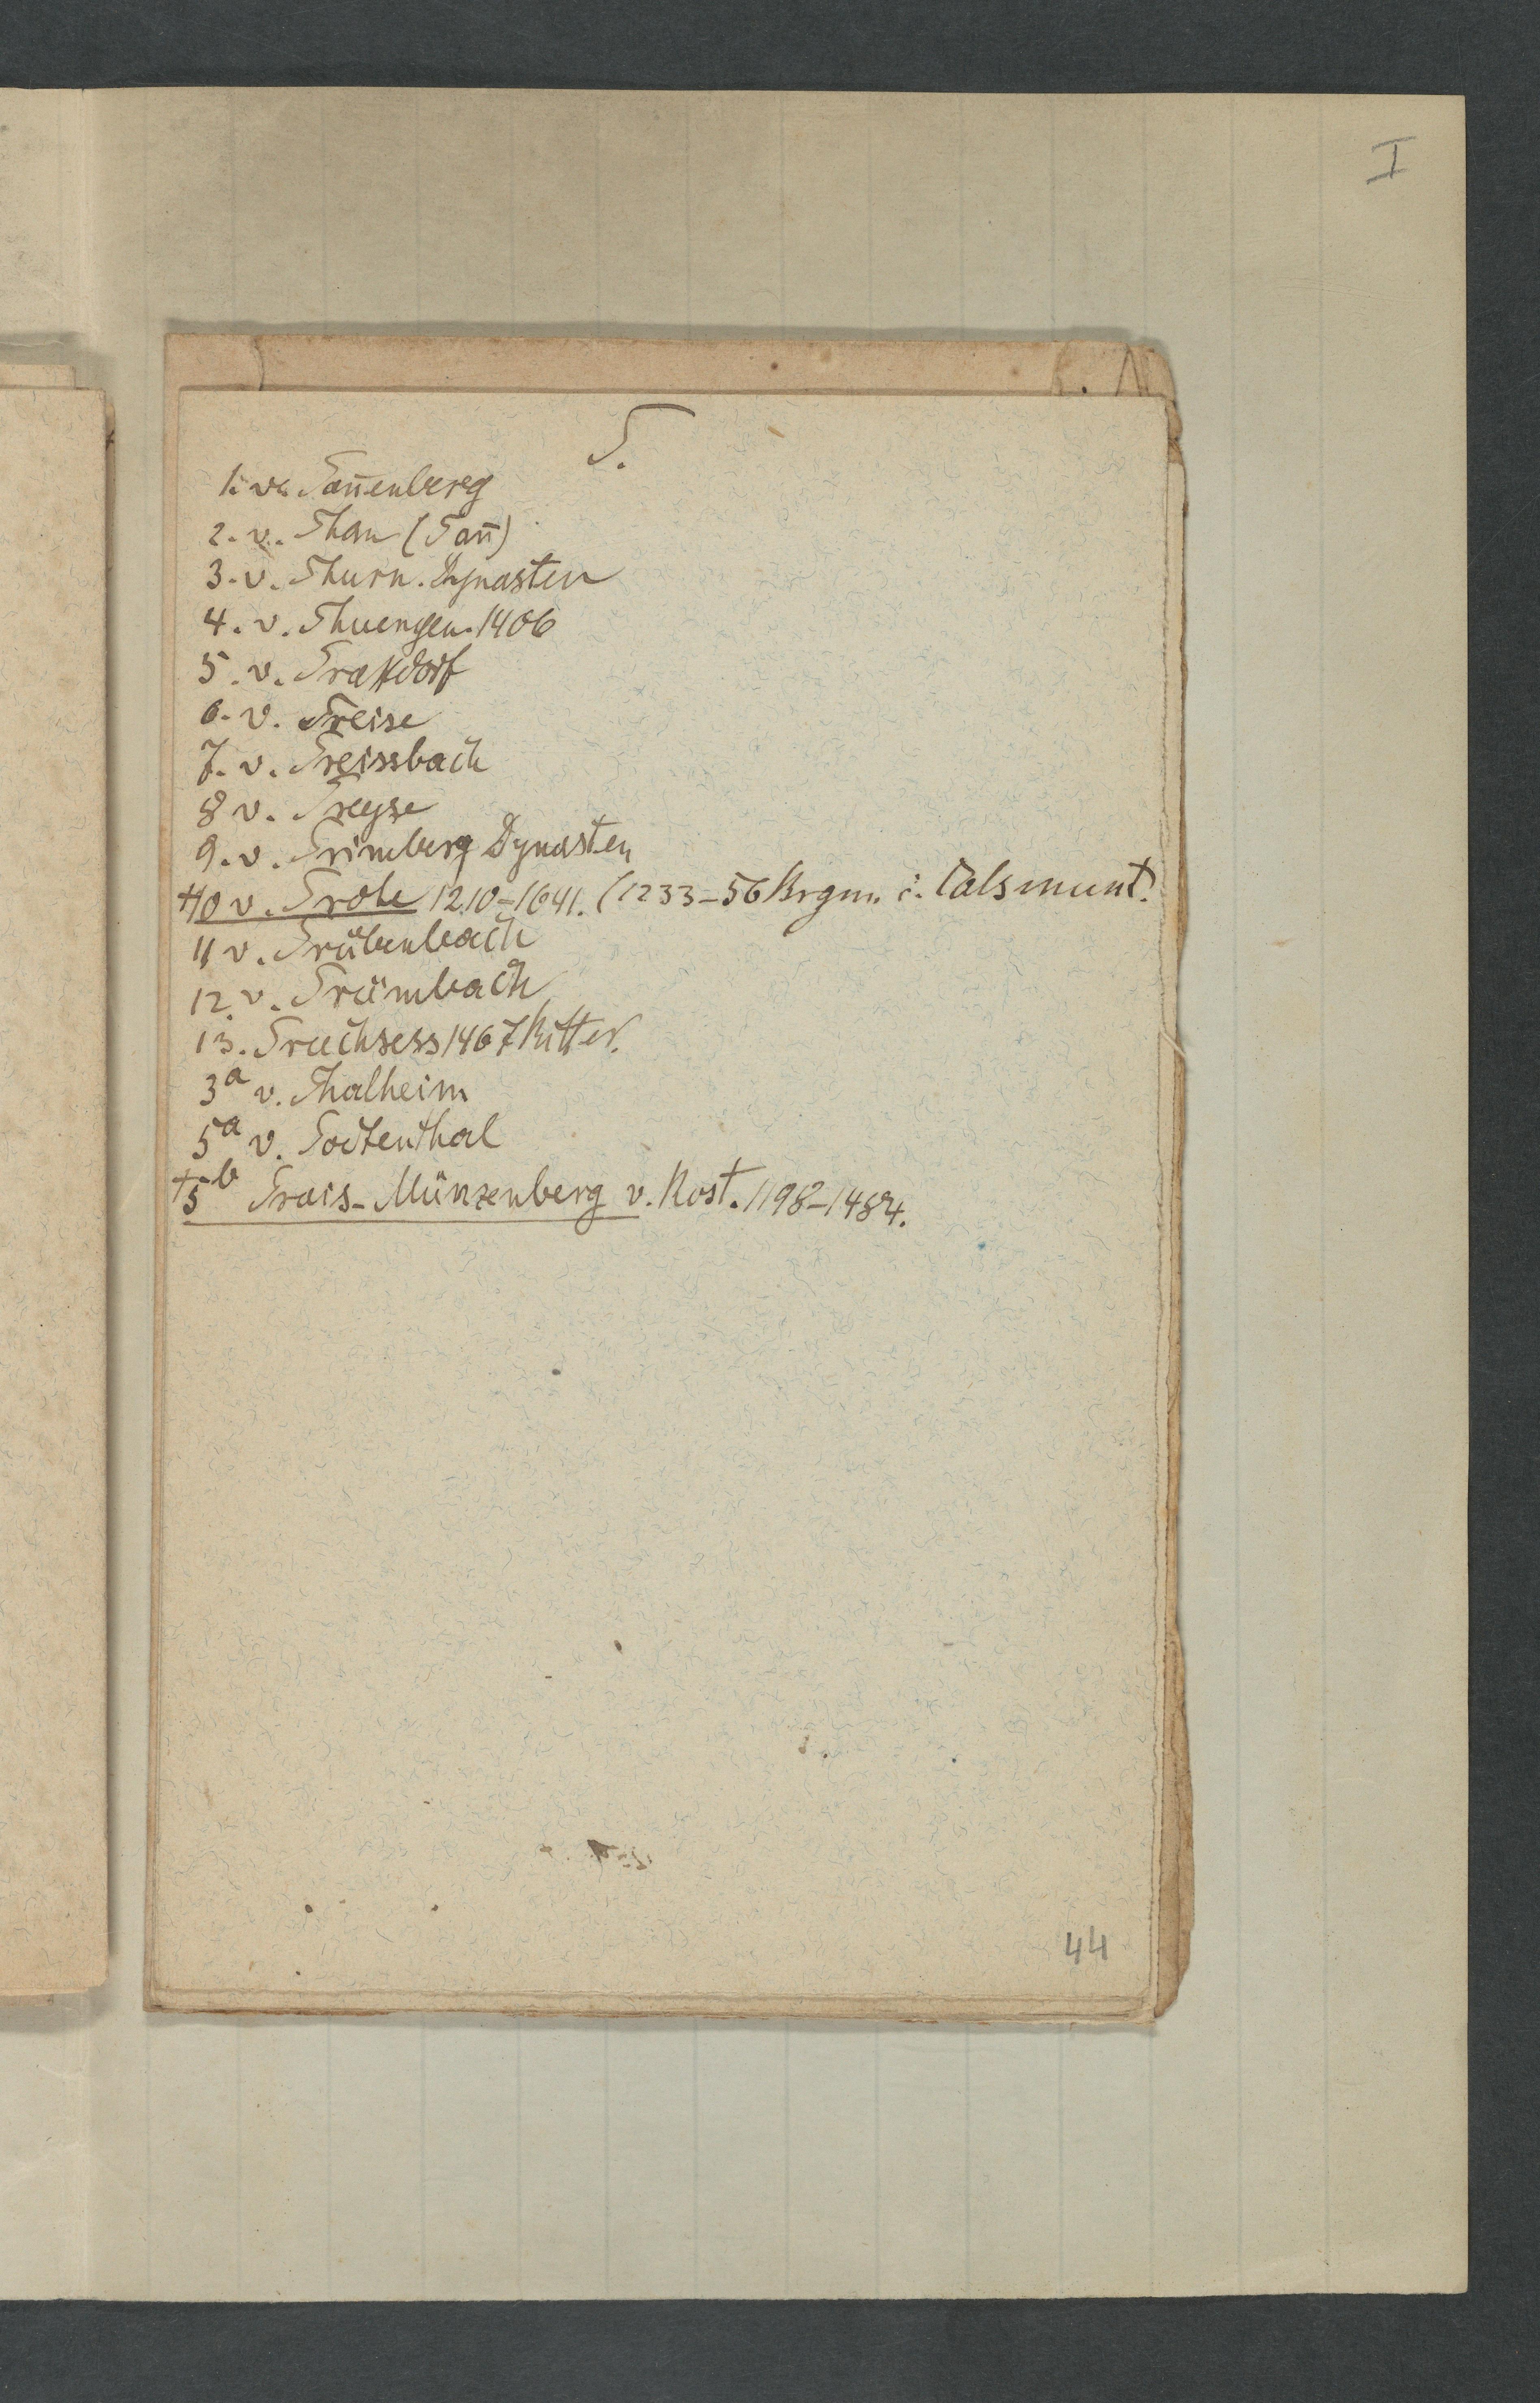 I
T.
1. v. Tan̄enberg
2. v. Than (Tan̄)
3. v. Thurn. Dynasten
4. v. Thuengen. 1406
5. v. Traxdorf
6. v. Treise
7. v. Treissbach
8 v. Treyse
9. v. Trimberg Dynasten
+10 v. Trohe 1210-1641. (1233-56 Brgm. i. Calsmunt.
11 v. Trübenbach
12. v. Trümbach
13. Truchsess 1467 Ritter.
3a v. Thalheim
5a v. Todtenthal
+5b Trais-Münzenberg v. Rost. 1198-1484.
44